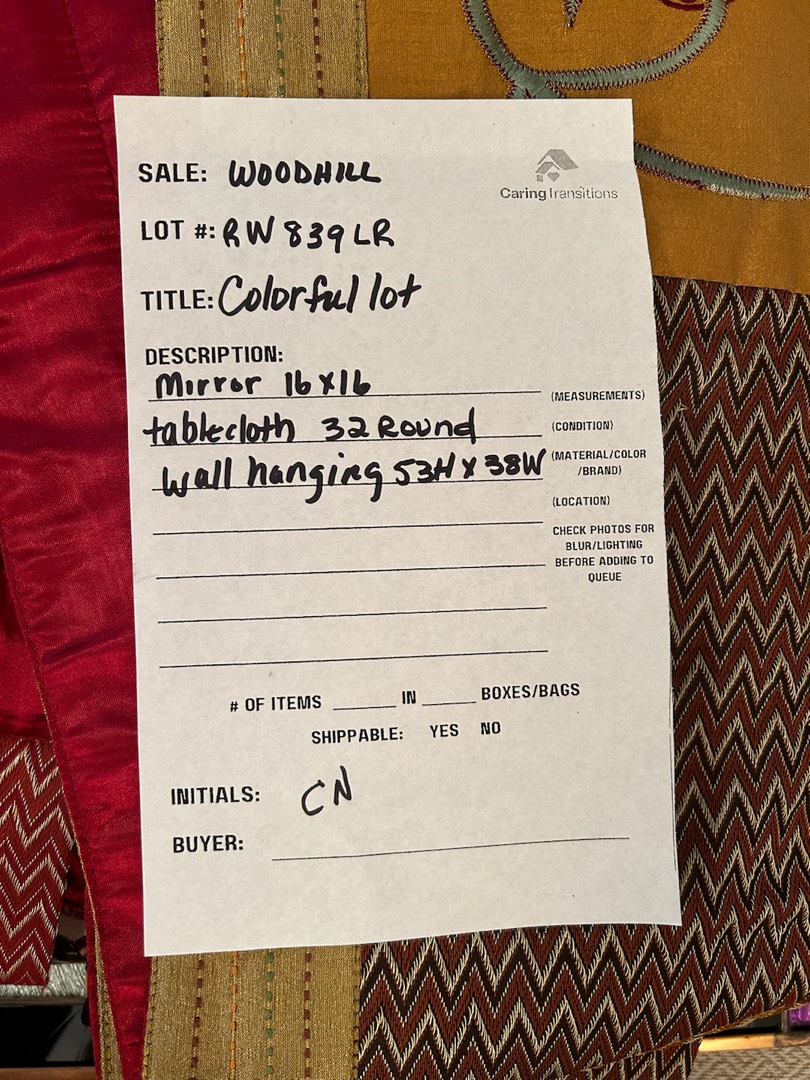 SALE: WOODHILL
CaringTransitions
LOT #: RW839LR
TITLE: Colorful lot
DESCRIPTION:
Mirror 16x16
(MEASUREMENTS)
tablecloth 32 Round
(CONDITION)
wall hanging 53H x 38W
(MATERIAL/COLOR
/BRAND)
(LOCATION)
CHECK PHOTOS FOR
BLUR/LIGHTING
BEFORE ADDING TO
QUEUE
# OF ITEMS ______ IN ______ BOXES/BAGS
SHIPPABLE: YES NO
INITIALS: CN
BUYER: